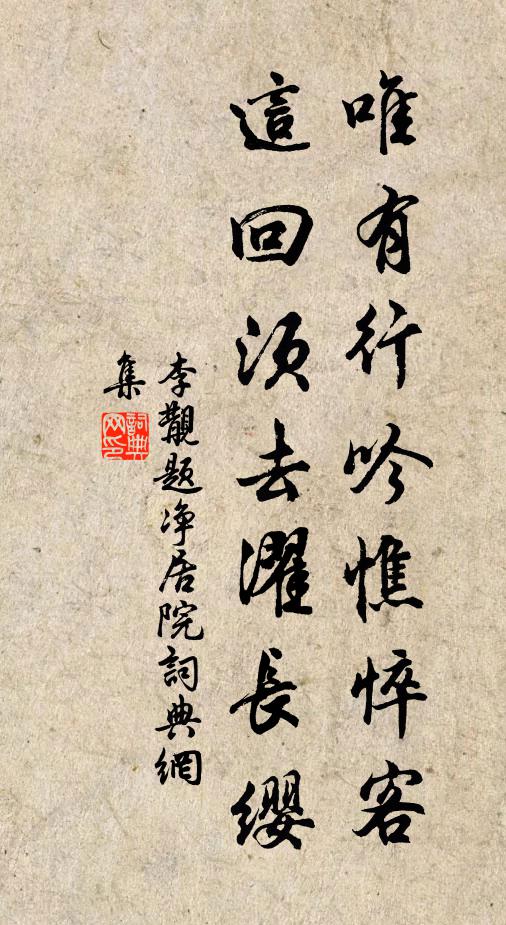 唯有行吟憔悴客
這回須去濯長纓
李覯题净居院詞典網
集
詞典
网印